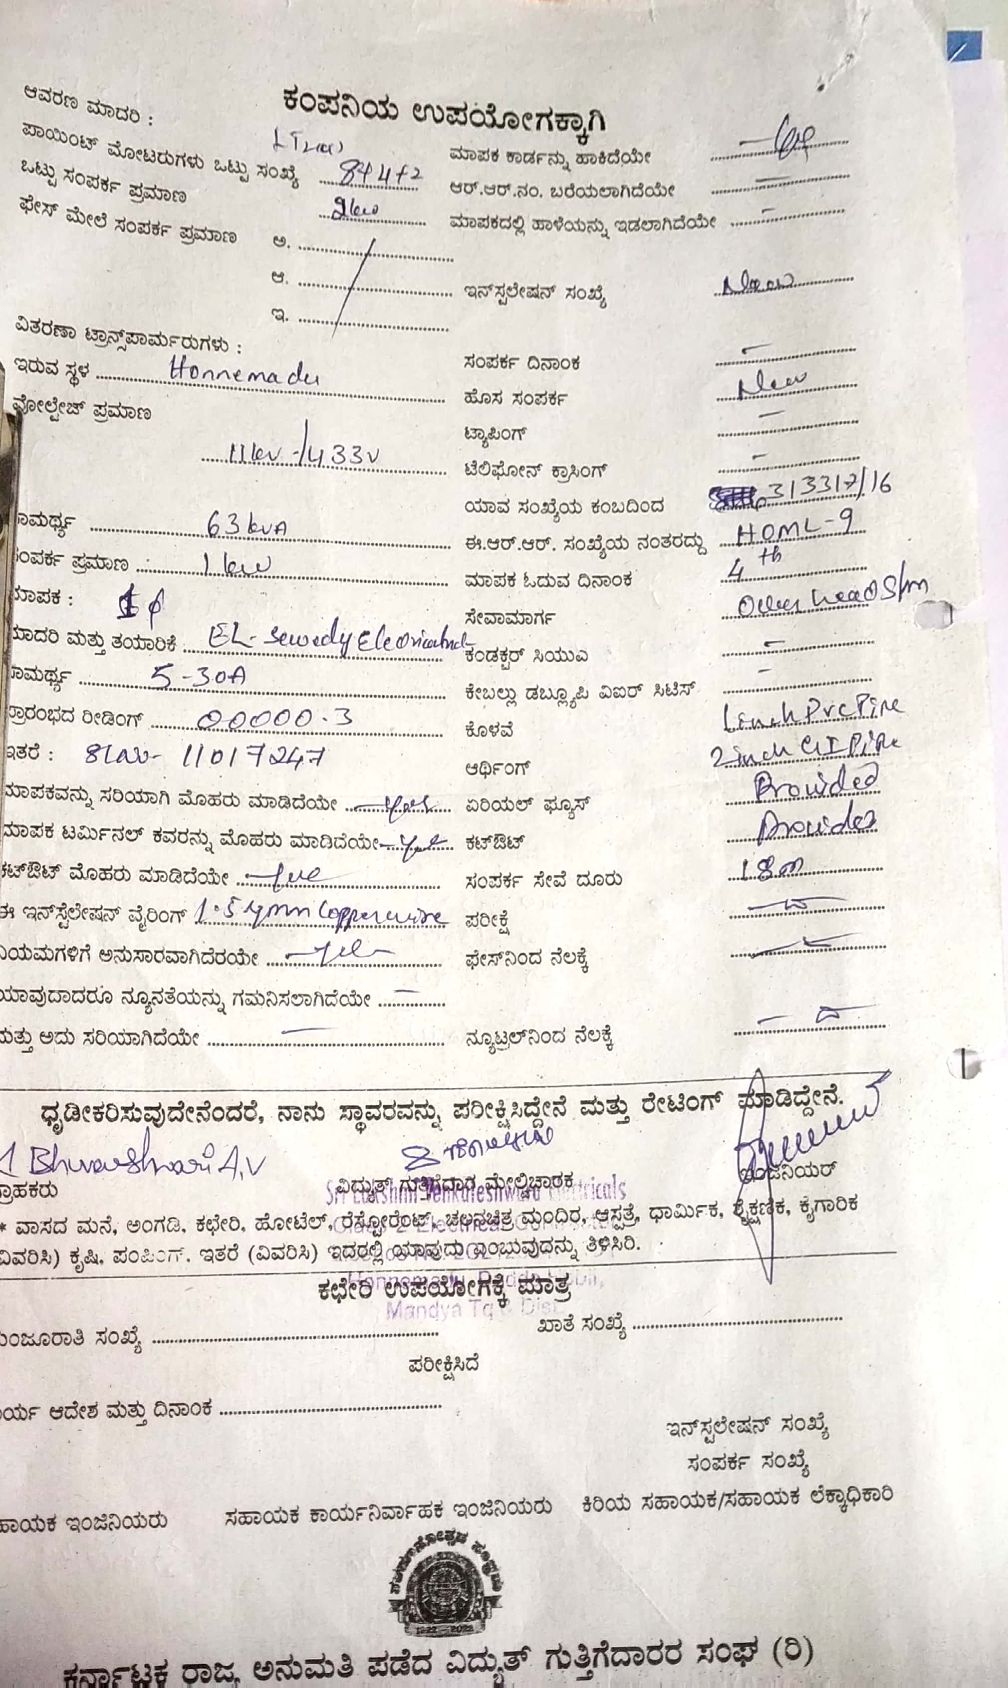 ಕಂಪನಿಯ ಉಪಯೋಗಕ್ಕಾಗಿ
ಆವರಣ ಮಾದರಿ :
ಪಾಯಿಂಟ್ ಮೋಟರುಗಳು ಒಟ್ಟು ಸಂಖ್ಯೆ
ಒಟ್ಟು ಸಂಪರ್ಕ ಪ್ರಮಾಣ
ಫೇಸ್ ಮೇಲೆ ಸಂಪರ್ಕ ಪ್ರಮಾಣ ಅ.
ಆ.
ಇ.
ಮಾಪಕ ಕಾರ್ಡನ್ನು ಹಾಕಿದೆಯೇ
ಆರ್.ಆರ್.ನಂ. ಬರೆಯಲಾಗಿದೆಯೇ –
ಮಾಪಕದಲ್ಲಿ ಹಾಳೆಯನ್ನು ಇಡಲಾಗಿದೆಯೇ –
ಇನ್‌ಸ್ಟಲೇಷನ್ ಸಂಖ್ಯೆ
ವಿತರಣಾ ಟ್ರಾನ್ಸ್‌ಪಾರ್ಮರುಗಳು :
ಇರುವ ಸ್ಥಳ Honnemadu
ವೋಲ್ಟೇಜ್ ಪ್ರಮಾಣ
11kv/433v
ಾಮರ್ಥ್ಯ 63 kvA
ಸಂಪರ್ಕ ಪ್ರಮಾಣ 1 kw
ಮಾಪಕ : 1 φ
ಮಾದರಿ ಮತ್ತು ತಯಾರಿಕೆ EL-Sewedy
ಾಮರ್ಥ್ಯ 5-30A
ಪ್ರಾರಂಭದ ರೀಡಿಂಗ್ 00000.3
ಇತರೆ : 11017247
ಮಾಪಕವನ್ನು ಸರಿಯಾಗಿ ಮೊಹರು ಮಾಡಿದೆಯೇ yes
ಮಾಪಕ ಟರ್ಮಿನಲ್ ಕವರನ್ನು ಮೊಹರು ಮಾಡಿದೆಯೇ yes
ಕಟ್‌ಔಟ್ ಮೊಹರು ಮಾಡಿದೆಯೇ yes
ಈ ಇನ್‌ಸ್ಟೆಲೇಷನ್ ವೈರಿಂಗ್ 1.5 copper wire
ನಿಯಮಗಳಿಗೆ ಅನುಸಾರವಾಗಿದೆರಯೇ yes
ಯಾವುದಾದರೂ ನ್ಯೂನತೆಯನ್ನು ಗಮನಿಸಲಾಗಿದೆಯೇ –
ಮತ್ತು ಅದು ಸರಿಯಾಗಿದೆಯೇ –
ಸಂಪರ್ಕ ದಿನಾಂಕ –
ಹೊಸ ಸಂಪರ್ಕ New
ಟ್ಯಾಪಿಂಗ್ –
ಟೆಲಿಫೋನ್ ಕ್ರಾಸಿಂಗ್ –
ಯಾವ ಸಂಖ್ಯೆಯ ಕಂಬದಿಂದ 313317/16
ಈ.ಆರ್.ಆರ್. ಸಂಖ್ಯೆಯ ನಂತರದ್ದು HOML-9
ಮಾಪಕ ಓದುವ ದಿನಾಂಕ 4th
ಸೇವಾಮಾರ್ಗ Over head
ಕಂಡಕ್ಟರ್ ಸಿಯುವಿ –
ಕೇಬಲ್ಲು ಡಬ್ಲ್ಯೂಪಿ ವಿಐರ್ ಸಿಟಿಸ್ –
ಕೊಳವೆ 1 inch PVC Pipe
ಆರ್ಥಿಂಗ್ 2 inch GI Pipe
ಏರಿಯಲ್ ಫ್ಯೂಸ್ Provided
ಕಟ್‌ಔಟ್ Provided
ಸಂಪರ್ಕ ಸೇವೆ ದೂರು 18m
ಪರೀಕ್ಷೆ
ಫೇಸ್‌ನಿಂದ ನೆಲಕ್ಕೆ
ನ್ಯೂಟ್ರಲ್‌ನಿಂದ ನೆಲಕ್ಕೆ
ಧೃಡೀಕರಿಸುವುದೇನೆಂದರೆ, ನಾನು ಸ್ಥಾವರವನ್ನು ಪರೀಕ್ಷಿಸಿದ್ದೇನೆ ಮತ್ತು ರೇಟಿಂಗ್ ಮಾಡಿದ್ದೇನೆ.
Bhuvaneshwari A.V
ಗ್ರಾಹಕರು ವಿದ್ಯುತ್ ಗುತ್ತಿಗೆದಾರ ಮೇಲ್ವಿಚಾರಕ ಇಂಜಿನಿಯರ್
Sri Lakshmi Venkateshwara Electricals
* ವಾಸದ ಮನೆ, ಅಂಗಡಿ, ಕಛೇರಿ, ಹೋಟೆಲ್, ರೆಸ್ಟೋರೆಂಟ್, ಚಲನಚಿತ್ರ ಮಂದಿರ, ಆಸ್ಪತ್ರೆ, ಧಾರ್ಮಿಕ, ಶೈಕ್ಷಣಿಕ, ಕೈಗಾರಿಕ
(ವಿವರಿಸಿ) ಕೃಷಿ, ಪಂಪಿಂಗ್, ಇತರೆ (ವಿವರಿಸಿ) ಇದರಲ್ಲಿ ಯಾವುದು ಎಂಬುವುದನ್ನು ತಿಳಿಸಿರಿ.
ಕಛೇರಿ ಉಪಯೋಗಕ್ಕೆ ಮಾತ್ರ
Mandya Tq & Dist
ಮಂಜೂರಾತಿ ಸಂಖ್ಯೆ ಖಾತೆ ಸಂಖ್ಯೆ
ಪರೀಕ್ಷಿಸಿದೆ
ಕಾರ್ಯ ಆದೇಶ ಮತ್ತು ದಿನಾಂಕ
ಇನ್‌ಸ್ಟಲೇಷನ್ ಸಂಖ್ಯೆ
ಸಂಪರ್ಕ ಸಂಖ್ಯೆ
ಸಹಾಯಕ ಇಂಜಿನಿಯರು ಸಹಾಯಕ ಕಾರ್ಯನಿರ್ವಾಹಕ ಇಂಜಿನಿಯರು ಕಿರಿಯ ಸಹಾಯಕ/ಸಹಾಯಕ ಲೆಕ್ಕಾಧಿಕಾರಿ
ಶತಮಾನೋತ್ಸವ ಸಂಭ್ರಮ
1922-2022
ಕರ್ನಾಟಕ ರಾಜ್ಯ ಅನುಮತಿ ಪಡೆದ ವಿದ್ಯುತ್ ಗುತ್ತಿಗೆದಾರರ ಸಂಘ (ರಿ)